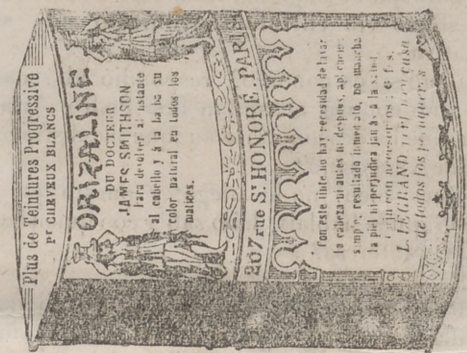 Plus de Teintures Progressive
Pr CHEVEUX BLANCS
ORIZALINE
DU DOCTEUR
JAMES SMITHSON
Para devolver al instante
al cabello y á la barba su
color natural en todos los
matices.
207 rue St HONORÉ, PARI
Con este tinte no hay necesidad de lavar
la cabeza ni antes ni despues, aplicacion
simple, resultado inmediato, no mancha
la piel ni perjudica jamás á la salud.
L. LEGRAND
de todos los